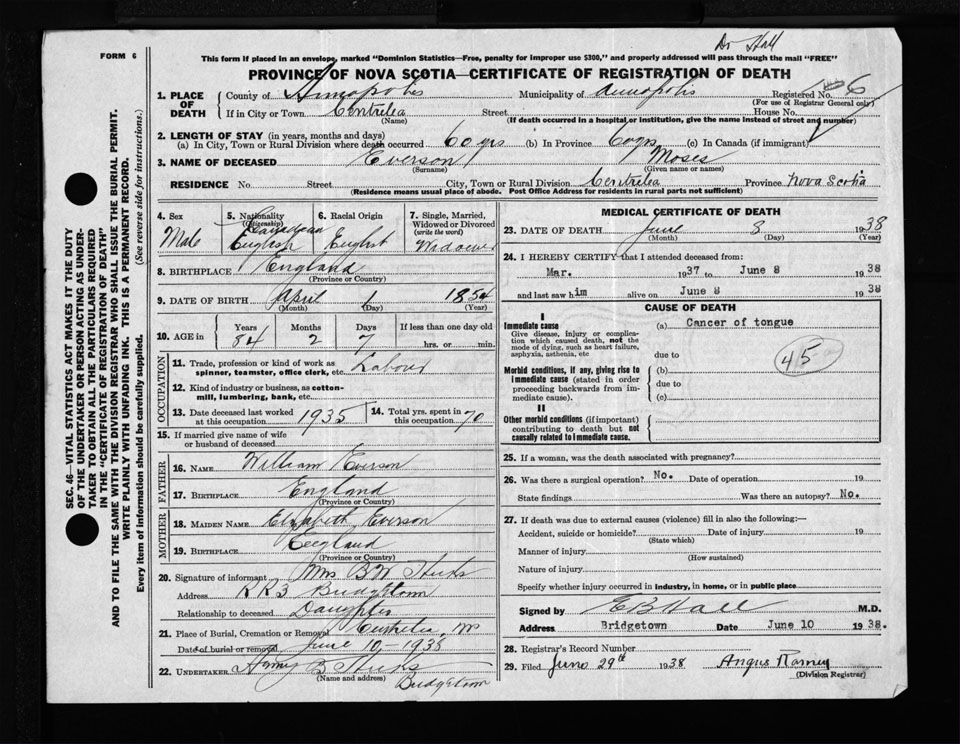 Dr Hall
FORM 6
This form if placed in an envelope, marked "Dominion Statistics—Free, penalty for improper use $300," and properly addressed will pass through the mail "FREE"
PROVINCE OF NOVA SCOTIA—CERTIFICATE OF REGISTRATION OF DEATH
1. PLACE OF DEATH
County of Annapolis Municipality of Annapolis Registered No. 6
(For use of Registrar General only)
If in City or Town Centrelea Street House No.
(Name) (If death occurred in a hospital or institution, give the name instead of street and number)
2. LENGTH OF STAY (in years, months and days)
(a) In City, Town or Rural Division where death occurred 60 yrs (b) In Province 60 yrs (c) In Canada (if immigrant)
3. NAME OF DECEASED Everson Moses
(Surname) (Given name or names)
RESIDENCE No. Street City, Town or Rural Division Centrelea Province Nova Scotia
(Residence means usual place of abode. Post Office Address for residents in rural parts not sufficient)
SEC. 46—VITAL STATISTICS ACT MAKES IT THE DUTY
OF THE UNDERTAKER OR PERSON ACTING AS UNDER-
TAKER TO OBTAIN ALL THE PARTICULARS REQUIRED
IN THE "CERTIFICATE OF REGISTRATION OF DEATH"
AND TO FILE THE SAME WITH THE DIVISION REGISTRAR WHO SHALL ISSUE THE BURIAL PERMIT.
WRITE PLAINLY WITH UNFADING INK. THIS IS A PERMANENT RECORD.
Every item of information should be carefully supplied. (See reverse side for instructions.)
4. Sex Male
5. Nationality (Citizenship) Canadian English
6. Racial Origin English
7. Single, Married, Widowed or Divorced (write the word) Widower
8. BIRTHPLACE England
(Province or Country)
9. DATE OF BIRTH April 1 1854
(Month) (Day) (Year)
10. AGE in Years 84 Months 2 Days 7 If less than one day old hrs. or min.
OCCUPATION
11. Trade, profession or kind of work as spinner, teamster, office clerk, etc. Labour
12. Kind of industry or business, as cotton-mill, lumbering, bank, etc.
13. Date deceased last worked at this occupation 1935
14. Total yrs. spent in this occupation 70
15. If married give name of wife or husband of deceased
FATHER
16. NAME William Everson
17. BIRTHPLACE England
(Province or Country)
MOTHER
18. MAIDEN NAME Elizabeth Everson
19. BIRTHPLACE England
(Province or Country)
20. Signature of informant Mrs B W
Address RR3 Bridgetown
Relationship to deceased Daughter
21. Place of Burial, Cremation or Removal Centrelea, NS
Date of burial or removal June 10, 1938
22. UNDERTAKER Harry B
(Name and address)
Bridgetown
MEDICAL CERTIFICATE OF DEATH
23. DATE OF DEATH June 8 1938
(Month) (Day) (Year)
24. I HEREBY CERTIFY that I attended deceased from:
Mar. 1937 to June 8 1938
and last saw him alive on June 8 1938
CAUSE OF DEATH
I
Immediate cause
Give disease, injury or complication which caused death, not the mode of dying, such as heart failure, asphyxia, asthenia, etc
(a) Cancer of tongue
due to
Morbid conditions, if any, giving rise to immediate cause (stated in order proceeding backwards from immediate cause).
(b)
due to
(c)
45
II
Other morbid conditions (if important) contributing to death but not causally related to immediate cause.
25. If a woman, was the death associated with pregnancy?
26. Was there a surgical operation? No. Date of operation 19
State findings Was there an autopsy? No.
27. If death was due to external causes (violence) fill in also the following:—
Accident, suicide or homicide? Date of injury 19
(State which)
Manner of injury
(How sustained)
Nature of injury
Specify whether injury occurred in industry, in home, or in public place
Signed by E B Hall M.D.
Address Bridgetown Date June 10 1938.
28. Registrar's Record Number
29. Filed June 29th 1938 Angus Ramey
(Division Registrar)